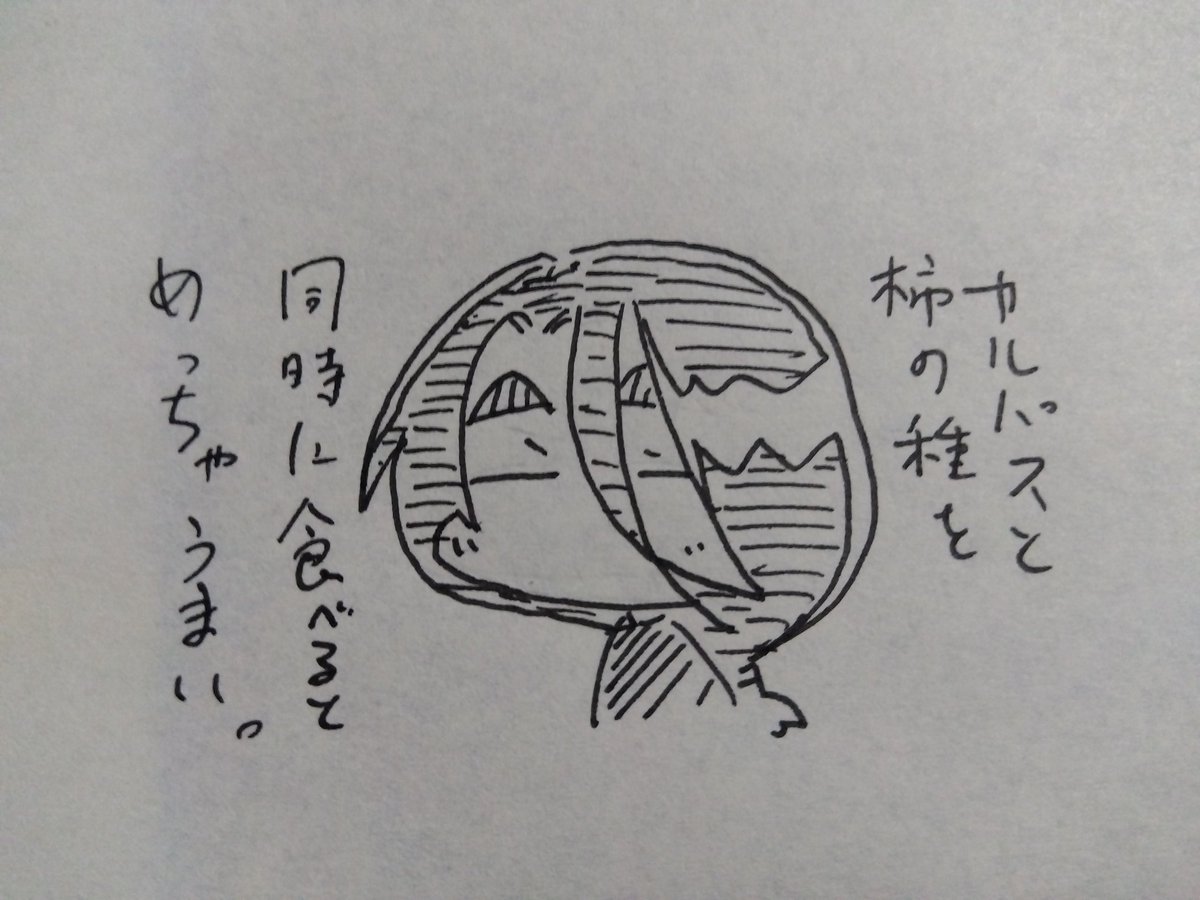 カルパスと
柿の種を
同時に食べると
めっちゃうまいっ